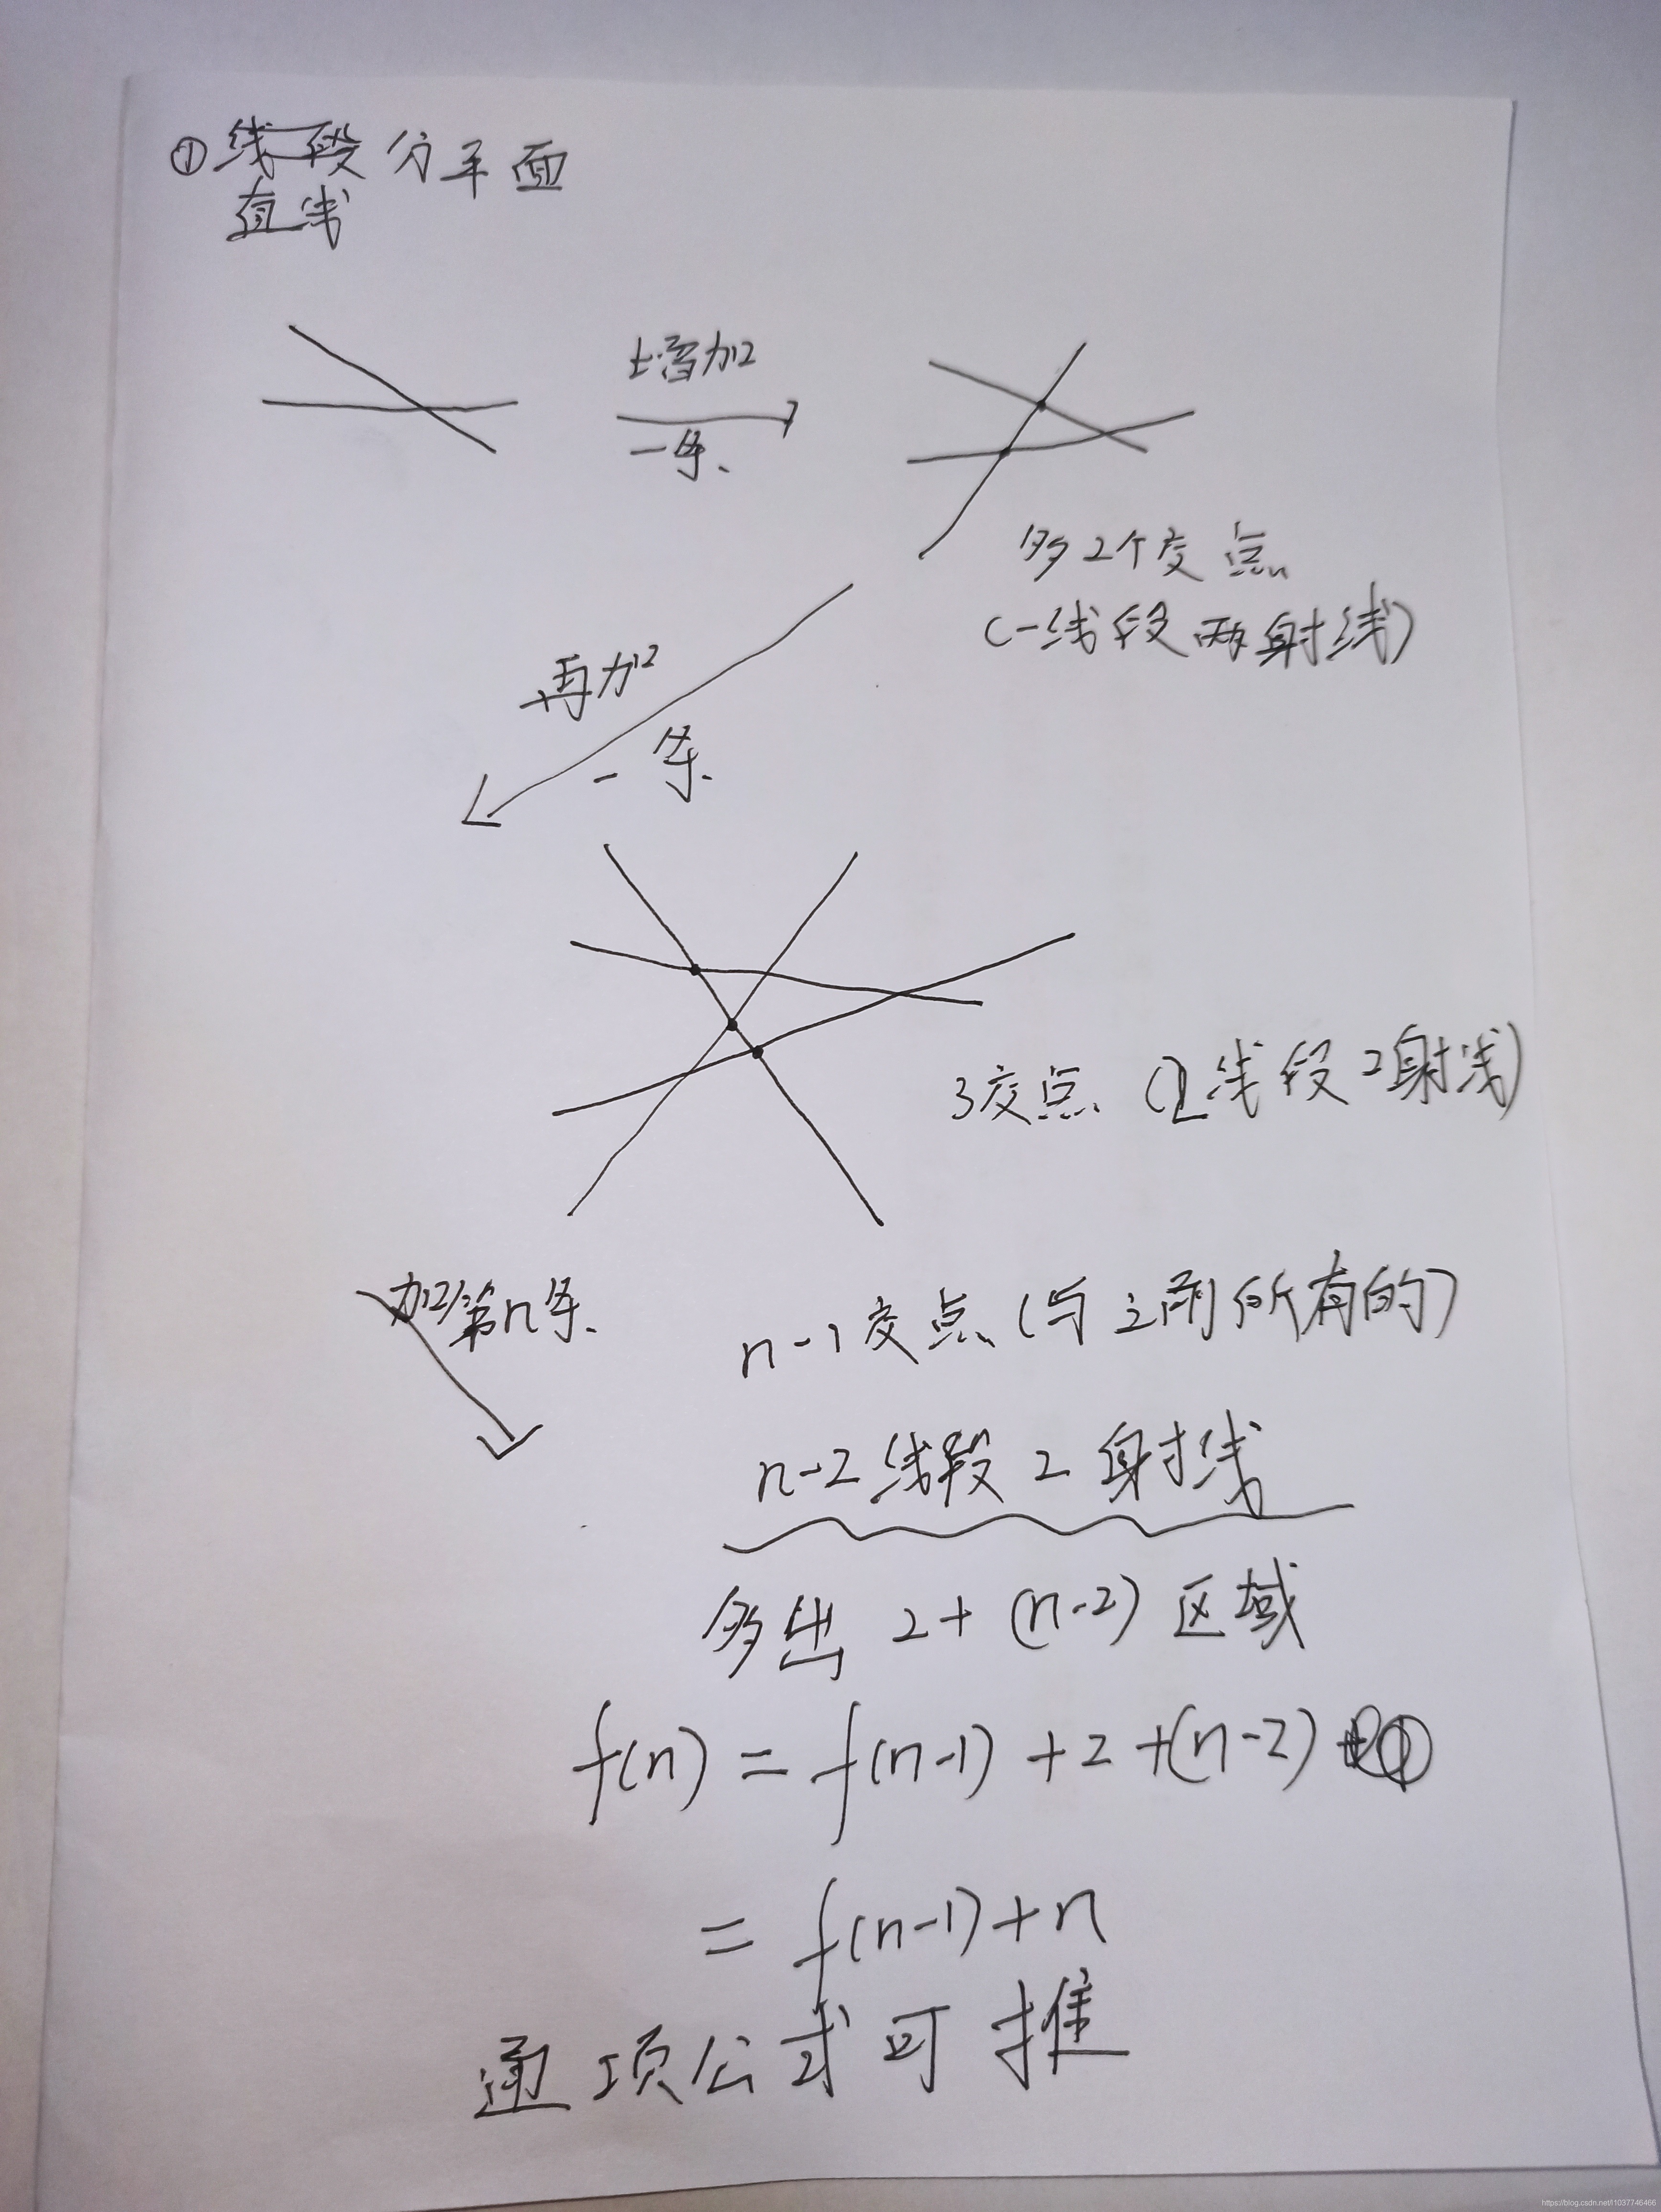 ① 线段分平面
直线
增加
一条
多2个交点
(一线段两射线)
再加
一条
3交点 (2线段2射线)
加第n条
n-1交点(与之前所有的)
n-2线段 2射线
多出 2+(n-2) 区域
f(n) = f(n-1) +2 +(n-2)
= f(n-1)+n
通项公式可推
https://blog.csdn.net/l1037746466